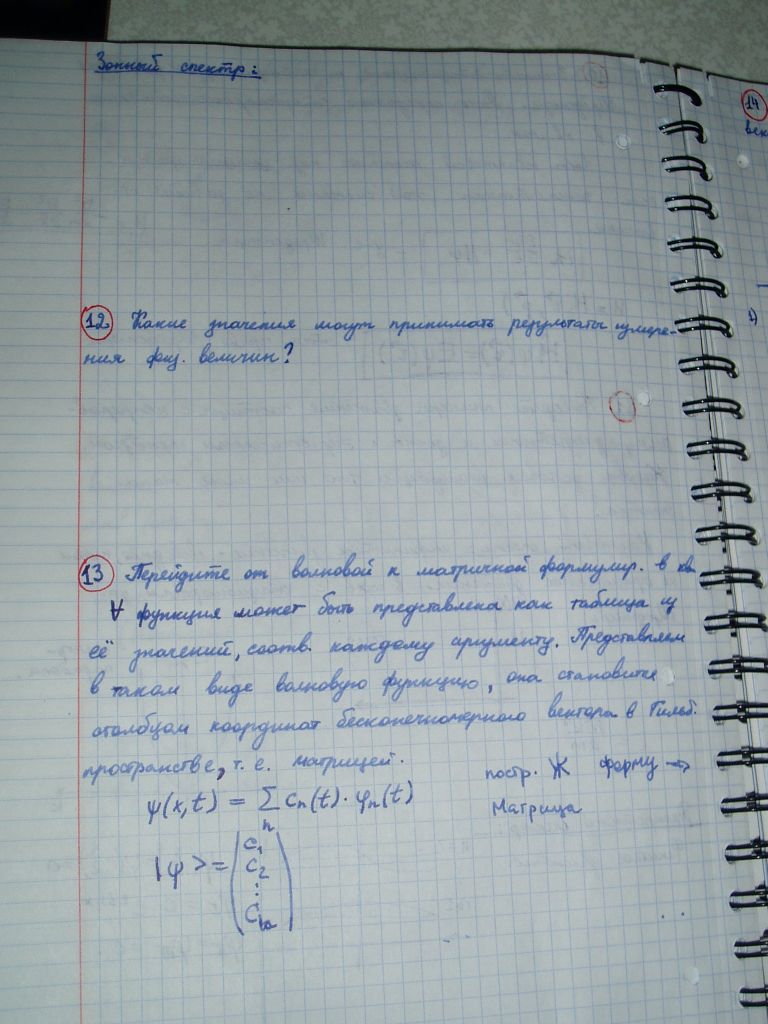 Зонный спектр:
12 Какие значения могут принимать результаты измере-
ния физ. величин?
13 Перейдите от волновой к матричной формулир. в кв
∀ функция может быть представлена как таблица из
её значений, соотв. каждому аргументу. Представляем
в таком виде волновую функцию, она становится
столбцом координат бесконечномерного вектора в Гильб.
пространстве, т. е. матрицей.
постр. Ж форму →
Матрица
ψ(x,t) = Σ cₙ(t)·φₙ(t)
n
|φ> = (c₁
c₂
⋮
14
век
1)